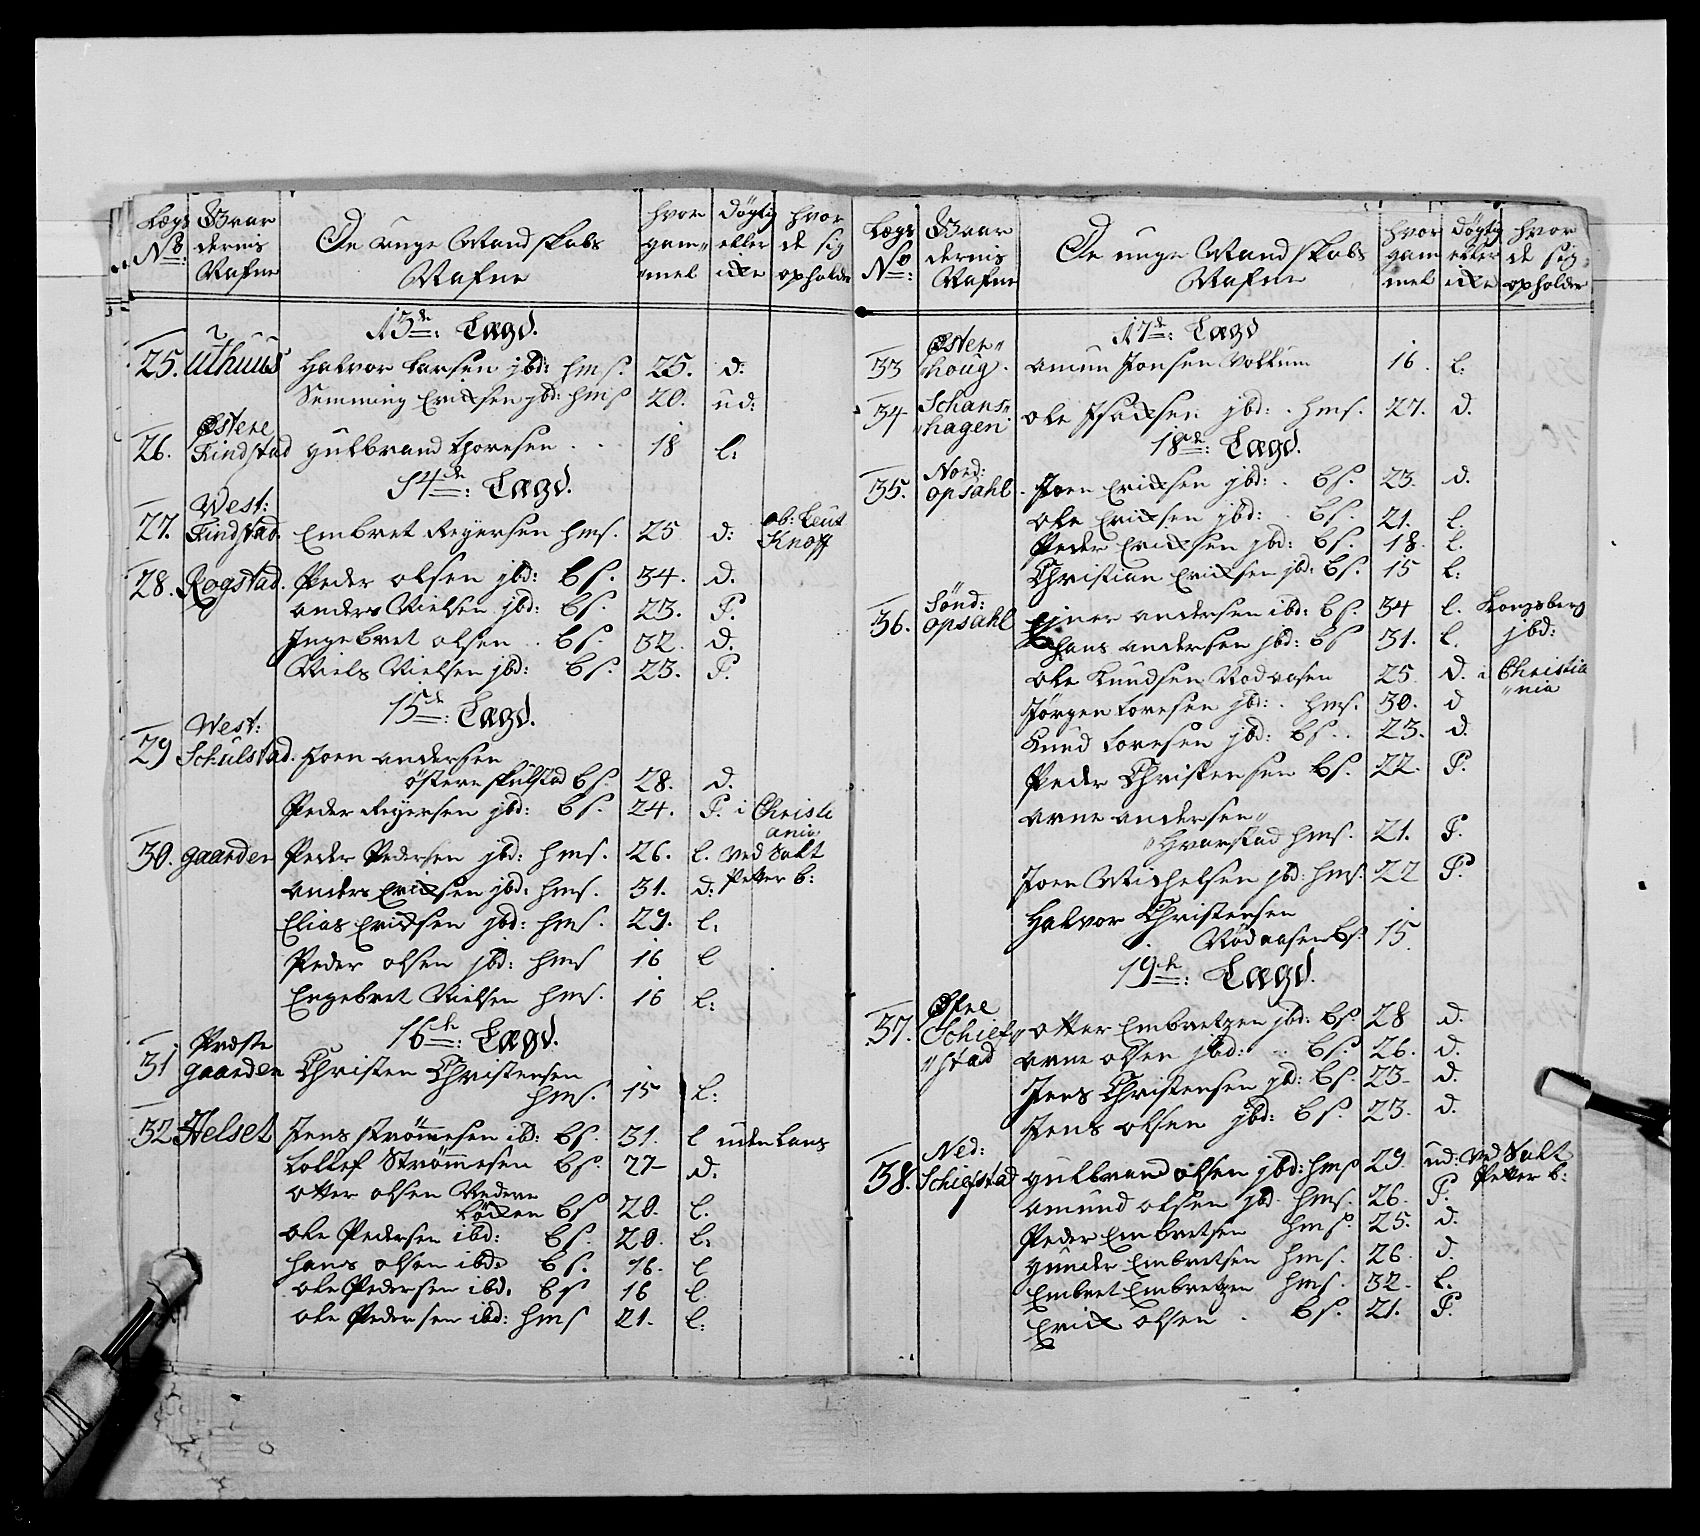 Lægs No: | Gaardernis Nafne | De unge Mandskabs Nafne | hvor gammel | døgtig eller icke | hvor de sig opholder
13de: Lægd.
25. Uthuus Halvor Larsen jbd: hms: 25. d:
Semming Ericksen jbd: hms 20. ud:
26. Østere Findstad gulbrand Thoresen . . 18 l:
14de: Lægd.
27. West: Findstad. Embret Reyersen hms. 25 d: ob: Leut Knoff
28. Rogstad. Peder olsen jbd: bs. 34. d.
anders Nielsen jbd: bs. 23. P.
Ingebret olsen .. bs. 32. d.
Niels Nielsen jbd: bs. 23. P.
15de: Lægd.
29 West: Schulstad. Joen andersen
østere skulstad bs. 28. d.
Peder Reyersen jbd: bs. 24. P. i Christiania
30. gaarden Peder Pedersen jbd: hms. 26. l. ved Salt Petter b:
anders Ericksen jbd: hms. 31. d:
Elias Ericksen jbd: hms. 29. l.
Peder olsen jbd: hms 16 l
Engebret Nielsen hms. 16 l:
16de: Lægd.
31 Præste gaarden Christen Christensen
hms. 15 l:
32 Helset Jens Strømmesen ibd: bs. 31. l uden Lans
Lollef Strømmesen bs. 27 d.
otter olsen Nedere
Løcken bs 20. l.
ole Pedersen ibd: bs. 20. l:
hans olsen ibd: bs. 16. l
ole Pedersen ibd. bs 16 l
ole Pedersen ibd: hms 21. l:
Lægs No: | Gaardernis Nafne | De unge Mandskabs Nafne | hvor gammel | døgtig eller icke | hvor de sig opholder
17de: Lægd
33 Østerhoug. amun Jonsen Volkum 16. l.
34 Schanshagen ole Isacksen jbd: . hms. 27. d.
18de: Lægd.
35. Nord: opsahl. Joen Ericksen jbd: . bs. 23. d.
ole Ericksen jbd: . bs. 21. l.
Peder Ericksen jbd: bs. 18. l.
Christian Ericksen jbd: bs. 15 l:
36. Sønd: opsahl Ejner andersen ibd: bs. 34 l. Kongsberg
hans andersen jbd: bs 31. l. jbd:
ole Knudsen Rodaasen 25. d. i Christiania
Jørgen Toresen jbd: . hms. 30. d
Knud Toresen jbd: bs. . 23. d.
Peder Christensen bs. 22. P.
arne andersen
Hvarstad hms. 21. P.
Joen Michelsen jbd: hms. 22 P.
Halvor Christensen
Rødaasen bs. 15.
19de: Lægd.
37. Øfre Schiefstad otter Embretzen jbd: bs. 28 d.
arne olsen jbd: . bs. 26. d.
Jens Christensen jbd: bs. 23- d.
Jens olsen jbd: bs. 23. d.
38. Ned: Schiefstad gulbrand olsen jbd: hms 29. ud: ved Salt Petter b:
amund olsen jbd. hms. 26. P.
Peder Embretsen hms. 25. d.
gunder Embretsen hms. 26. d.
Embret Embretzen hms. 32. l.
Erick olsen . bs. 21. P.